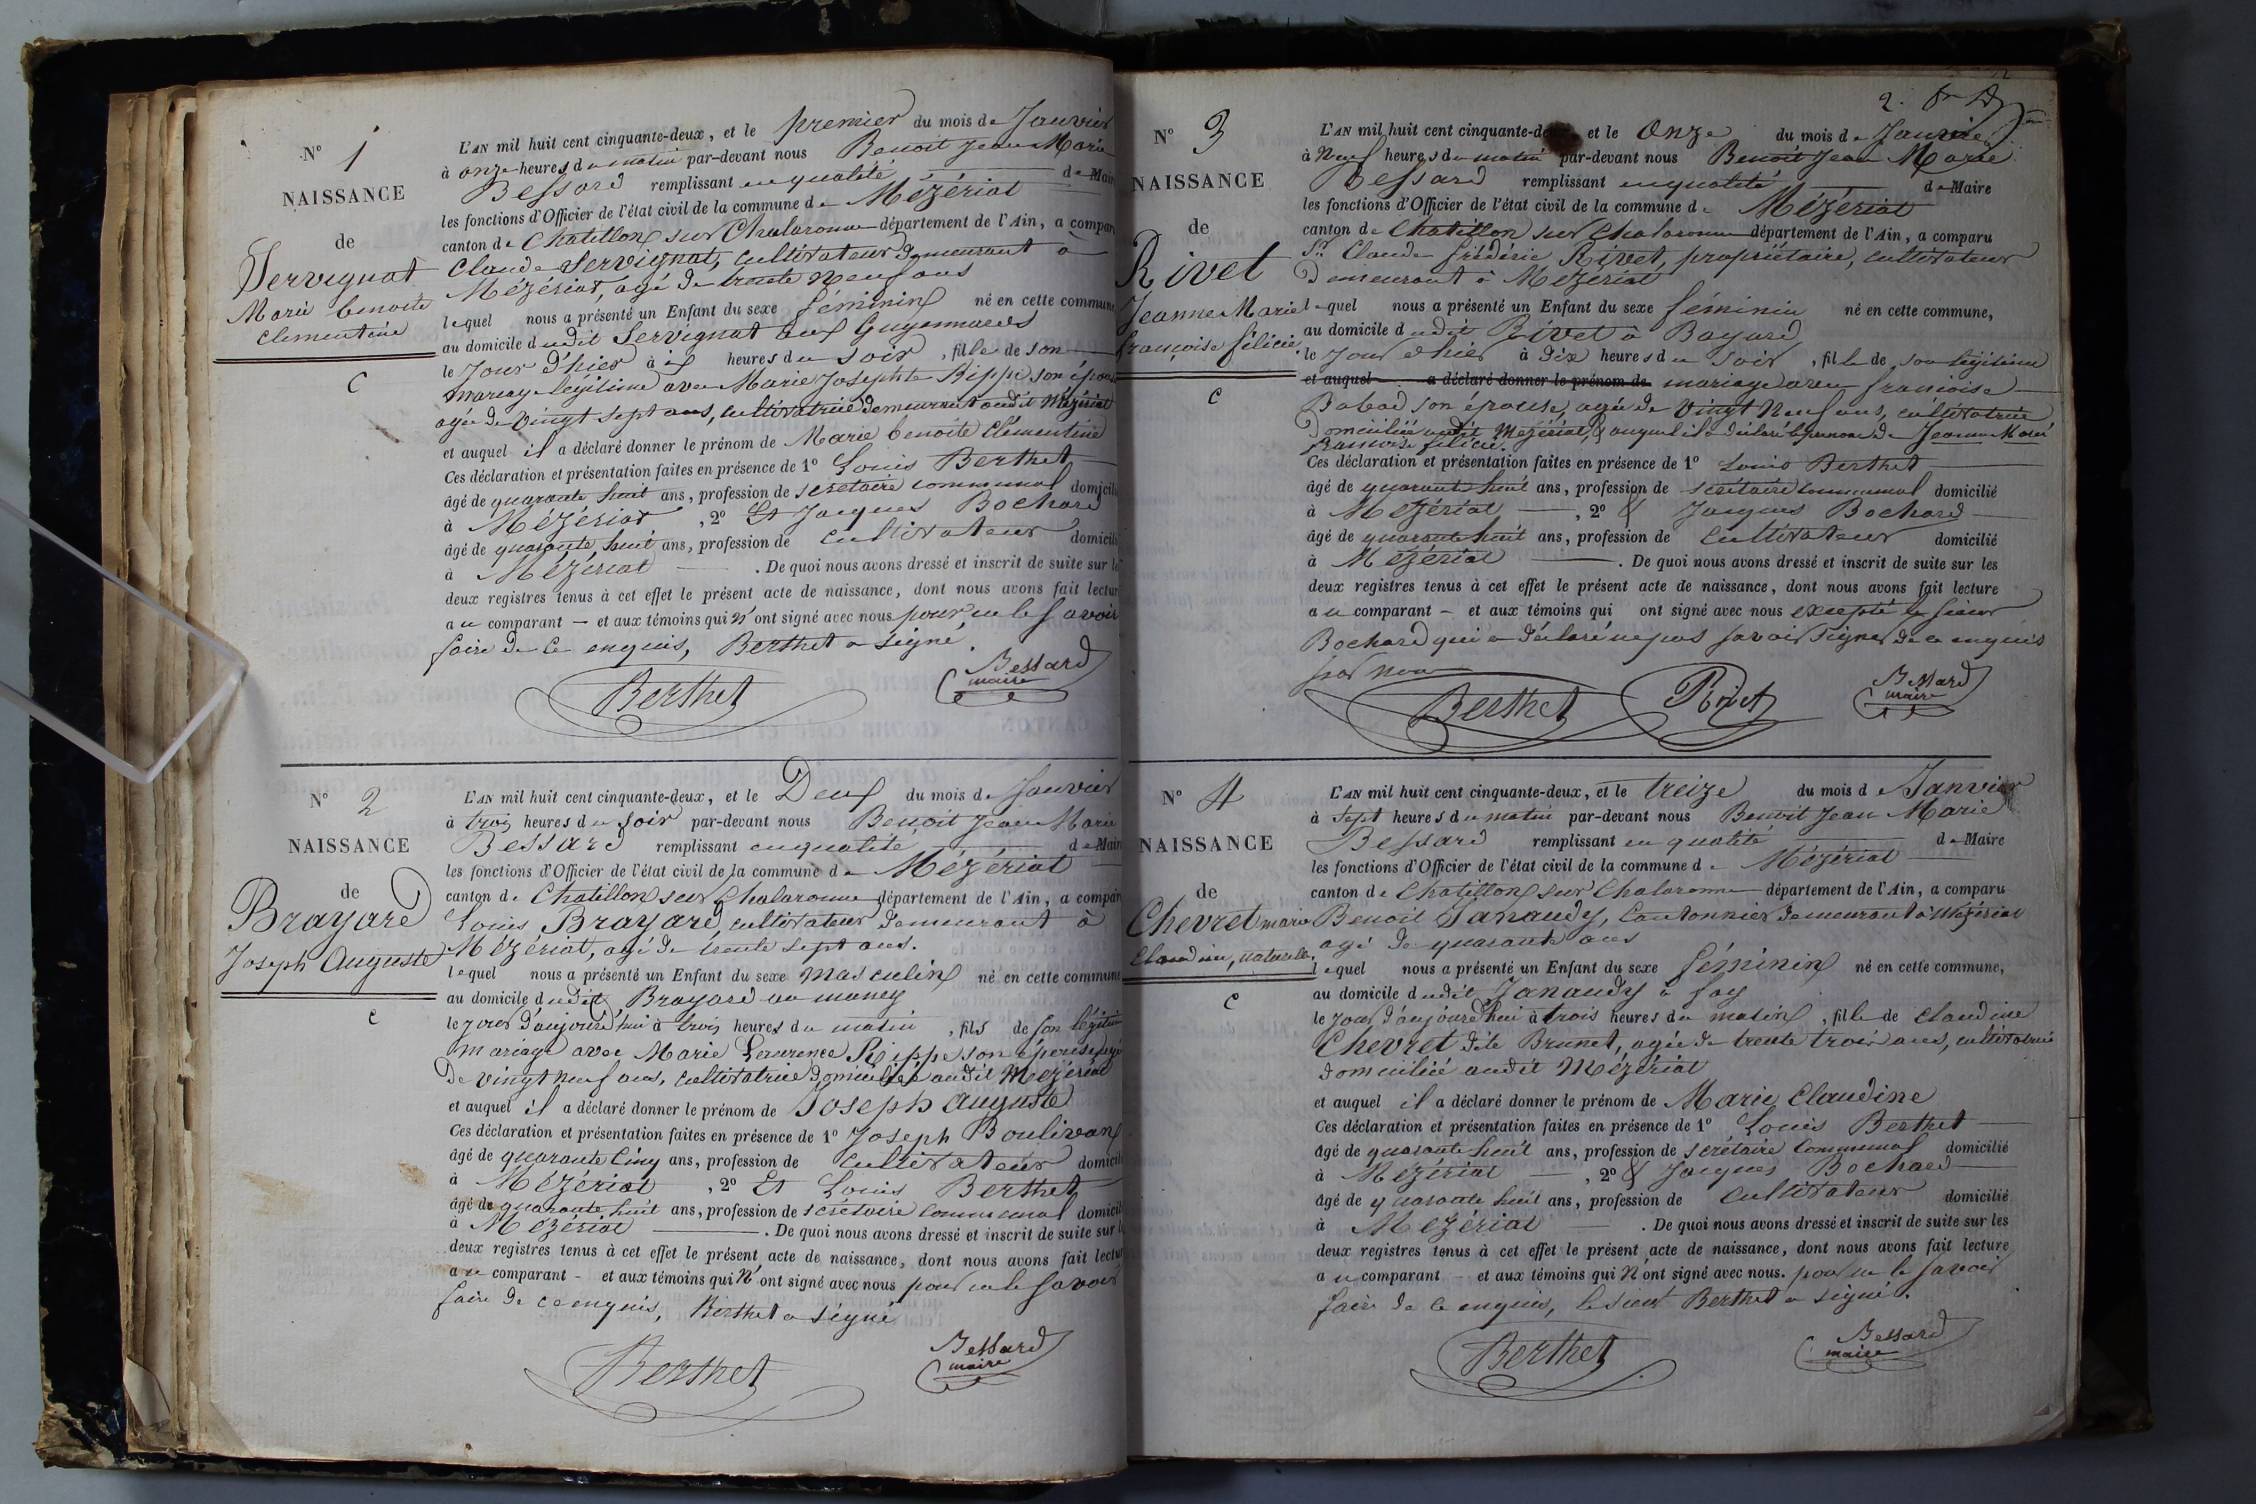 N° 1
NAISSANCE
de
Servignat
Marie benoite
clementine
C
L'AN mil huit cent cinquante-deux, et le premier du mois de Janvier
à onze heures du matin par-devant nous Benoit Jean Marie
Bessard remplissant en qualité de Mair
les fonctions d'Officier de l'état civil de la commune de Mézériat
canton de Chatillon sur Chalaronne département de l'Ain, a compar
Claude Servignat, cultivateur demeurant à
Mézériat, agé de trente neuf ans
lequel nous a présenté un Enfant du sexe féminin né en cette commune
au domicile dudit Servignat aux Guyennaeds
le Jour d'hier à six heures du soir, fille de son
mariage légitime avec Marie Josephte Rippe son épouse
agée de vingt sept ans, cultivatrice demeurant audit Mézériat
et auquel il a déclaré donner le prénom de Marie benoite Clémentine
Ces déclaration et présentation faites en présence de 1° Louis Berthet
âgé de quarante huit ans, profession de secrétaire communal domicili
à Mézériat, 2° Et Jacques Bochard
âgé de quarante huit ans, profession de cultivateur domicili
à Mézériat. De quoi nous avons dressé et inscrit de suite sur le
deux registres tenus à cet effet le présent acte de naissance, dont nous avons fait lectur
au comparant — et aux témoins qui n'ont signé avec nous pour ne le savoir
faire de ce enquis, Berthet a signé.
Berthet
Bessard
maire
N° 2
NAISSANCE
de
Brayard
Joseph Auguste
C
L'AN mil huit cent cinquante-deux, et le Deux du mois de Janvier
à trois heures du soir par-devant nous Benoit Jean Marie
Bessard remplissant en qualité de Mair
les fonctions d'Officier de l'état civil de la commune de Mézériat
canton de Chatillon sur Chalaronne département de l'Ain, a compar
Louis Brayard, cultivateur demeurant à
Mézériat, agé de trente sept ans.
lequel nous a présenté un Enfant du sexe masculin né en cette commune
au domicile dudit Brayard au maney
le jour d'aujourd'hui à trois heures du matin, fils de son légitime
mariage avec Marie Laurence Rippe son épouse agée
de vingt neuf ans, cultivatrice domiciliée audit Mézériat
et auquel il a déclaré donner le prénom de Joseph Auguste
Ces déclaration et présentation faites en présence de 1° Joseph Boulivan
âgé de quarante Cinq ans, profession de cultivateur domicili
à Mézériat, 2° Et Louis Berthet
âgé de quarante huit ans, profession de secrétaire communal domicili
à Mézériat. De quoi nous avons dressé et inscrit de suite sur l
deux registres tenus à cet effet le présent acte de naissance, dont nous avons fait lectur
au comparant - et aux témoins qui N'ont signé avec nous pour ne le savoir
faire de ce enquis, Berthet a signé
Berthet
Bessard
maire
2.
N° 3
NAISSANCE
de
Rivet
Jeanne Marie
françoise félicie
C
L'AN mil huit cent cinquante-deux et le Onze du mois de Janvier
à Neuf heures du matin par-devant nous Benoit Jean Marie
Bessard remplissant en qualité de Maire
les fonctions d'Officier de l'état civil de la commune de Mézériat
canton de Chatillon sur Chalaronne département de l'Ain, a comparu
Sr. Claude frédéric Rivet, propriétaire, cultivateur
Demeurant à Mézériat
lequel nous a présenté un Enfant du sexe féminin né en cette commune,
au domicile dudit Rivet à Bayard
le Jour d'hier à Dix heures du soir, fille de son légitime
et auquel a déclaré donner le prénom de mariage avec françoise
Babad son épouse, agée de vingt Neuf ans, cultivatrice
Domiciliée audit Mézériat, & auquel il a déclaré le prénom de Jeanne Marie
francoise félicie.
Ces déclaration et présentation faites en présence de 1° Louis Berthet
âgé de quarante huit ans, profession de secrétaire communal domicilié
à Mézériat, 2° & Jacques Bochard
âgé de quarante huit ans, profession de cultivateur domicilié
à Mézériat. De quoi nous avons dressé et inscrit de suite sur les
deux registres tenus à cet effet le présent acte de naissance, dont nous avons fait lecture
au comparant — et aux témoins qui ont signé avec nous excepté le sieur
Bochard qui a déclaré ne pas savoir signer de ce enquis
par nous
Berthet
Rivet
Bessard
maire
N° 4
NAISSANCE
de
Chevret marie
Claudine, naturelle,
C
L'AN mil huit cent cinquante-deux, et le treize du mois d Janvier
à Sept heures du matin par-devant nous Benoit Jean Marie
Bessard remplissant en qualité de Maire
les fonctions d'Officier de l'état civil de la commune de Mézériat
canton de Chatillon sur Chalaronne département de l'Ain, a comparu
Benoit Janaudy, Cantonnier demeurant à Mézériat
agé de quarante ans
lequel nous a présenté un Enfant du sexe féminin né en cette commune,
au domicile dudit Janaudy à fay
le Jour d'aujourd'hui à trois heures du matin, fille de Claudine
Chevret dite Brunet, agée de trente trois ans, cultivatrice
domiciliée audit Mézériat
et auquel il a déclaré donner le prénom de Marie Claudine
Ces déclaration et présentation faites en présence de 1° Louis Berthet
âgé de quarante huit ans, profession de secrétaire Communal domicilié
à Mézériat, 2° & Jacques Bochard
âgé de quarante huit ans, profession de cultivateur domicilié
à Mézériat. De quoi nous avons dressé et inscrit de suite sur les
deux registres tenus à cet effet le présent acte de naissance, dont nous avons fait lecture
au comparant - et aux témoins qui N'ont signé avec nous. pour ne le savoir
faire de ce enquis, le sieur Berthet a signé.
Berthet
Bessard
maire